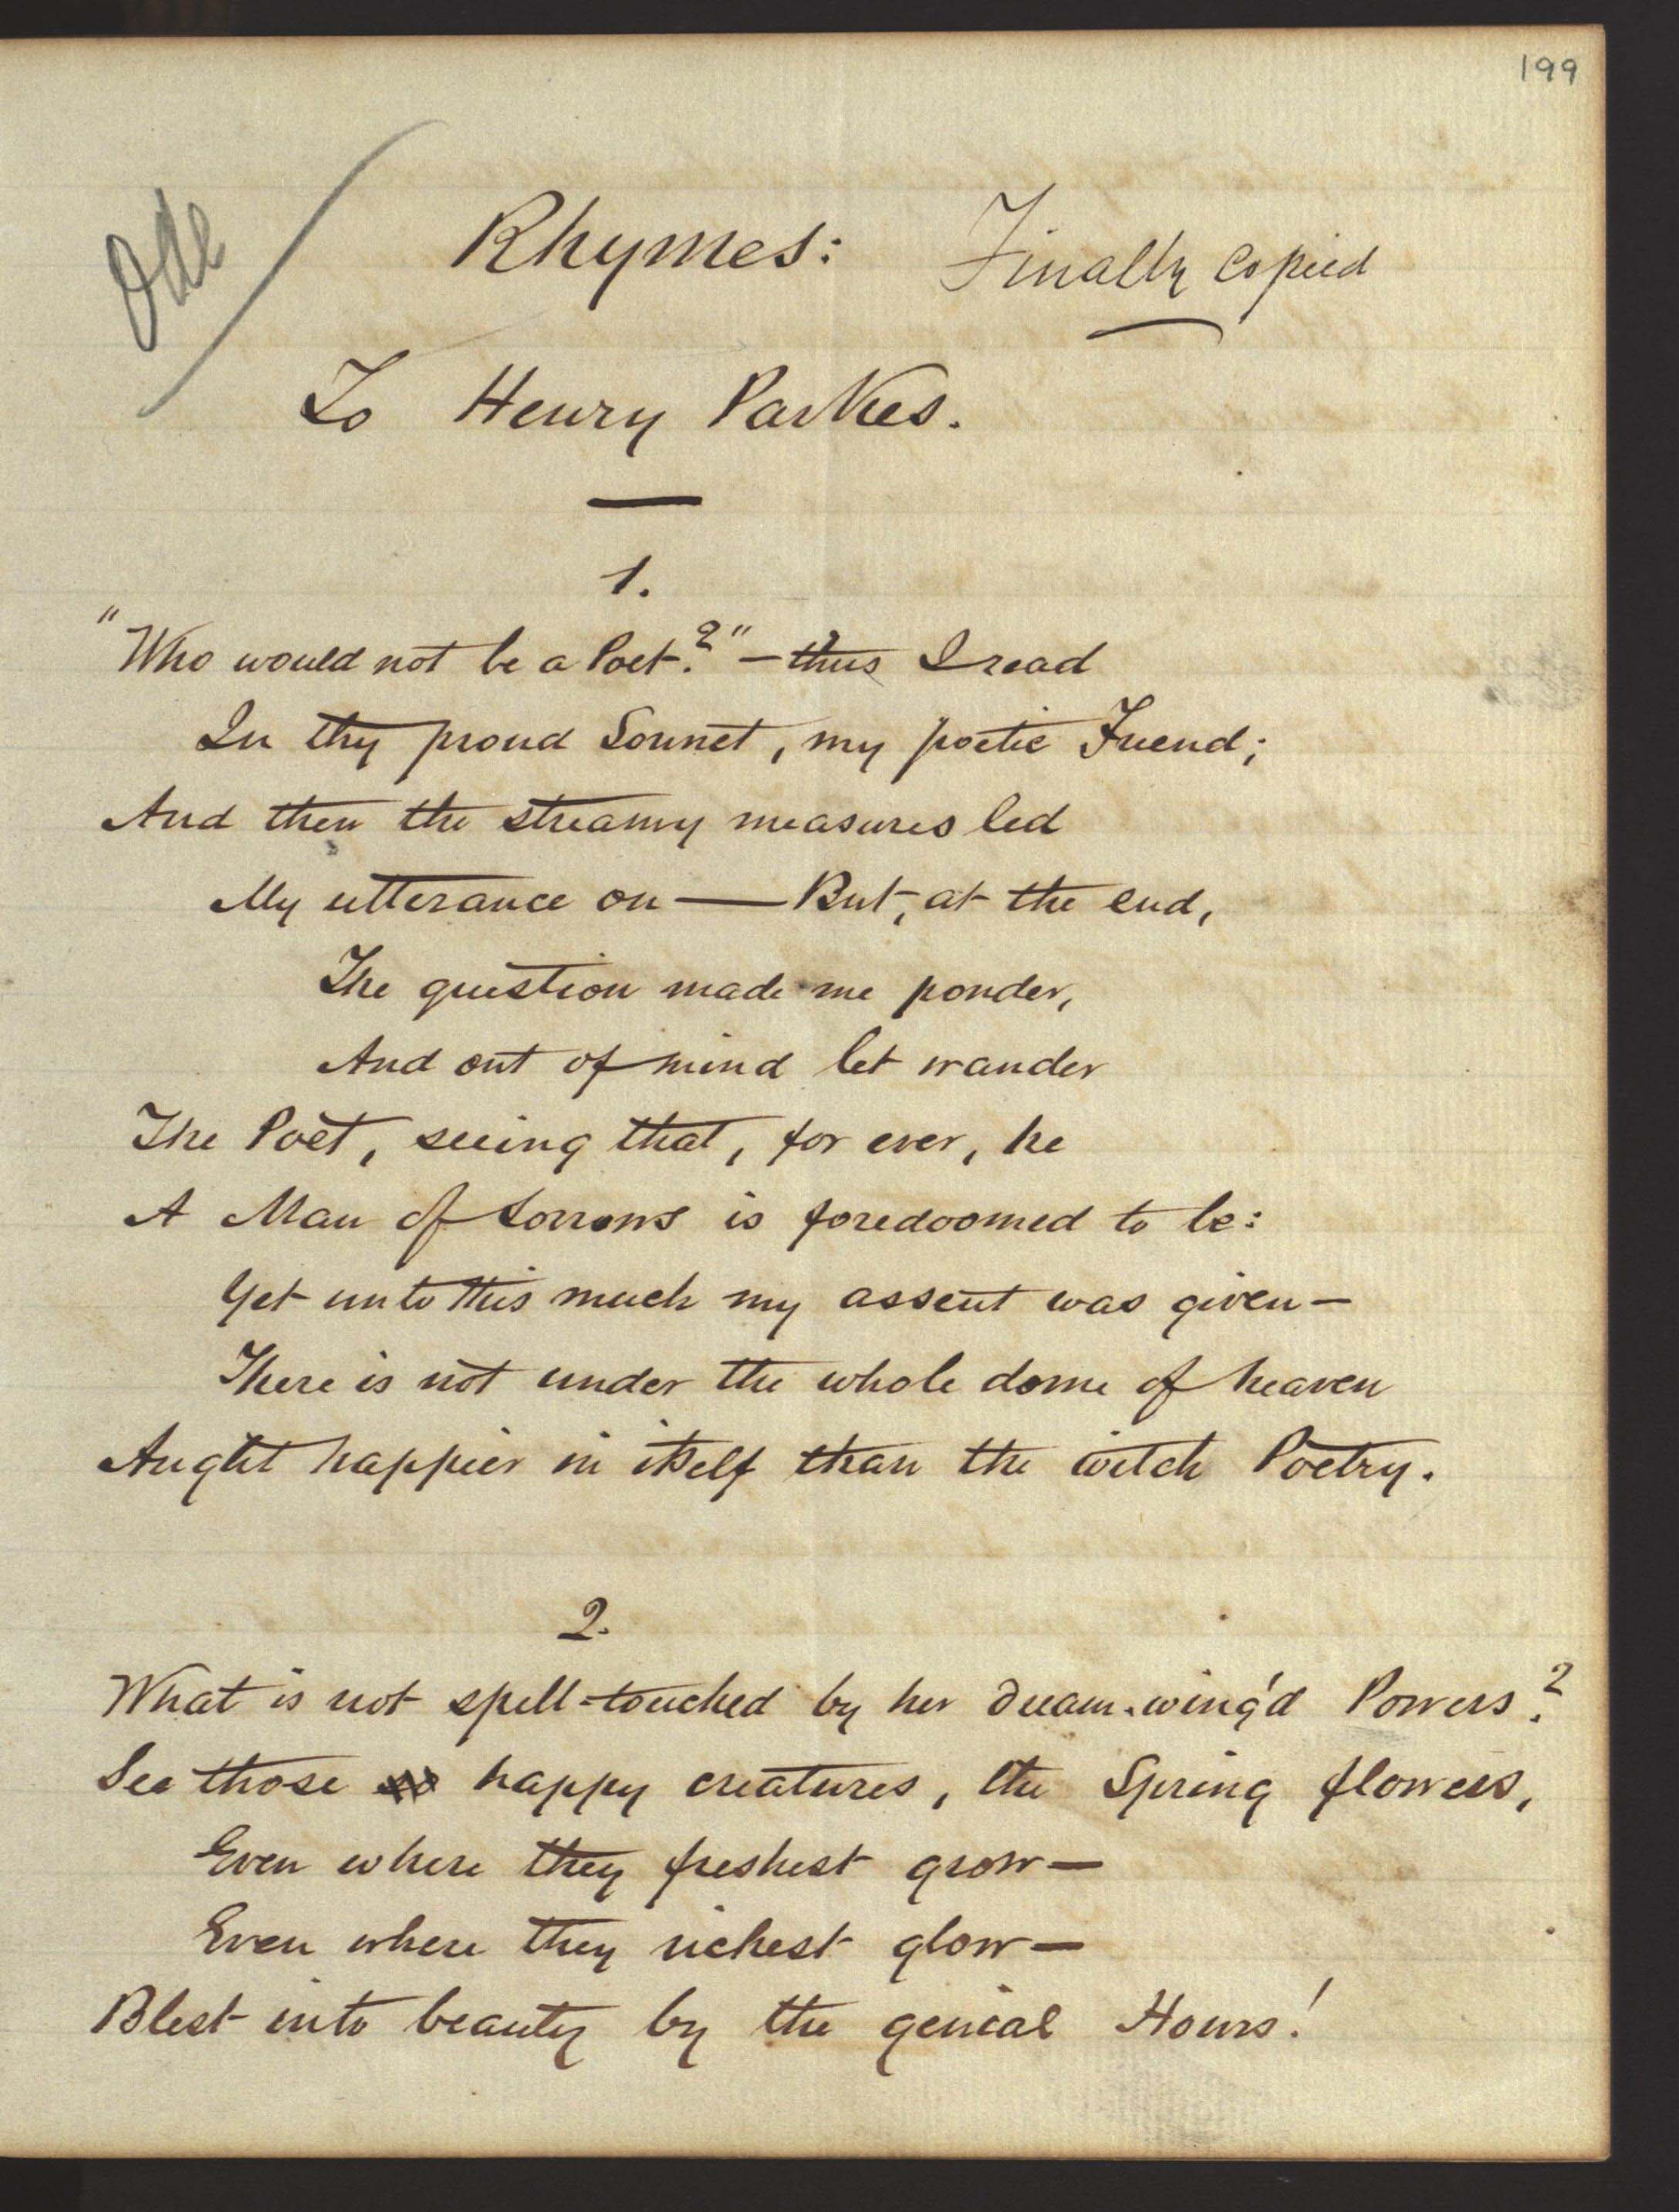 199
Ode
Rhymes: Finally Copied
To Henry Parkes.
1.
"Who would not be a Poet?" — thus I read
In thy proud Sonnet, my poetic Friend;
And then the streamy measures led
My utterance on — But, at the end,
The question made me ponder,
And out of mind let wander
The Poet, seeing that, for ever, he
A Man of Sorrows is foredoomed to be:
Yet unto this much my assent was given —
There is not under the whole dome of heaven
Aught happier in itself than the witch Poetry.
2.
What is not spell-touched by her dream-wing'd Powers?
See those so happy creatures, the Spring flowers,
Even where they freshest grow —
Even where they richest glow —
Blest into beauty by the genial Hours!